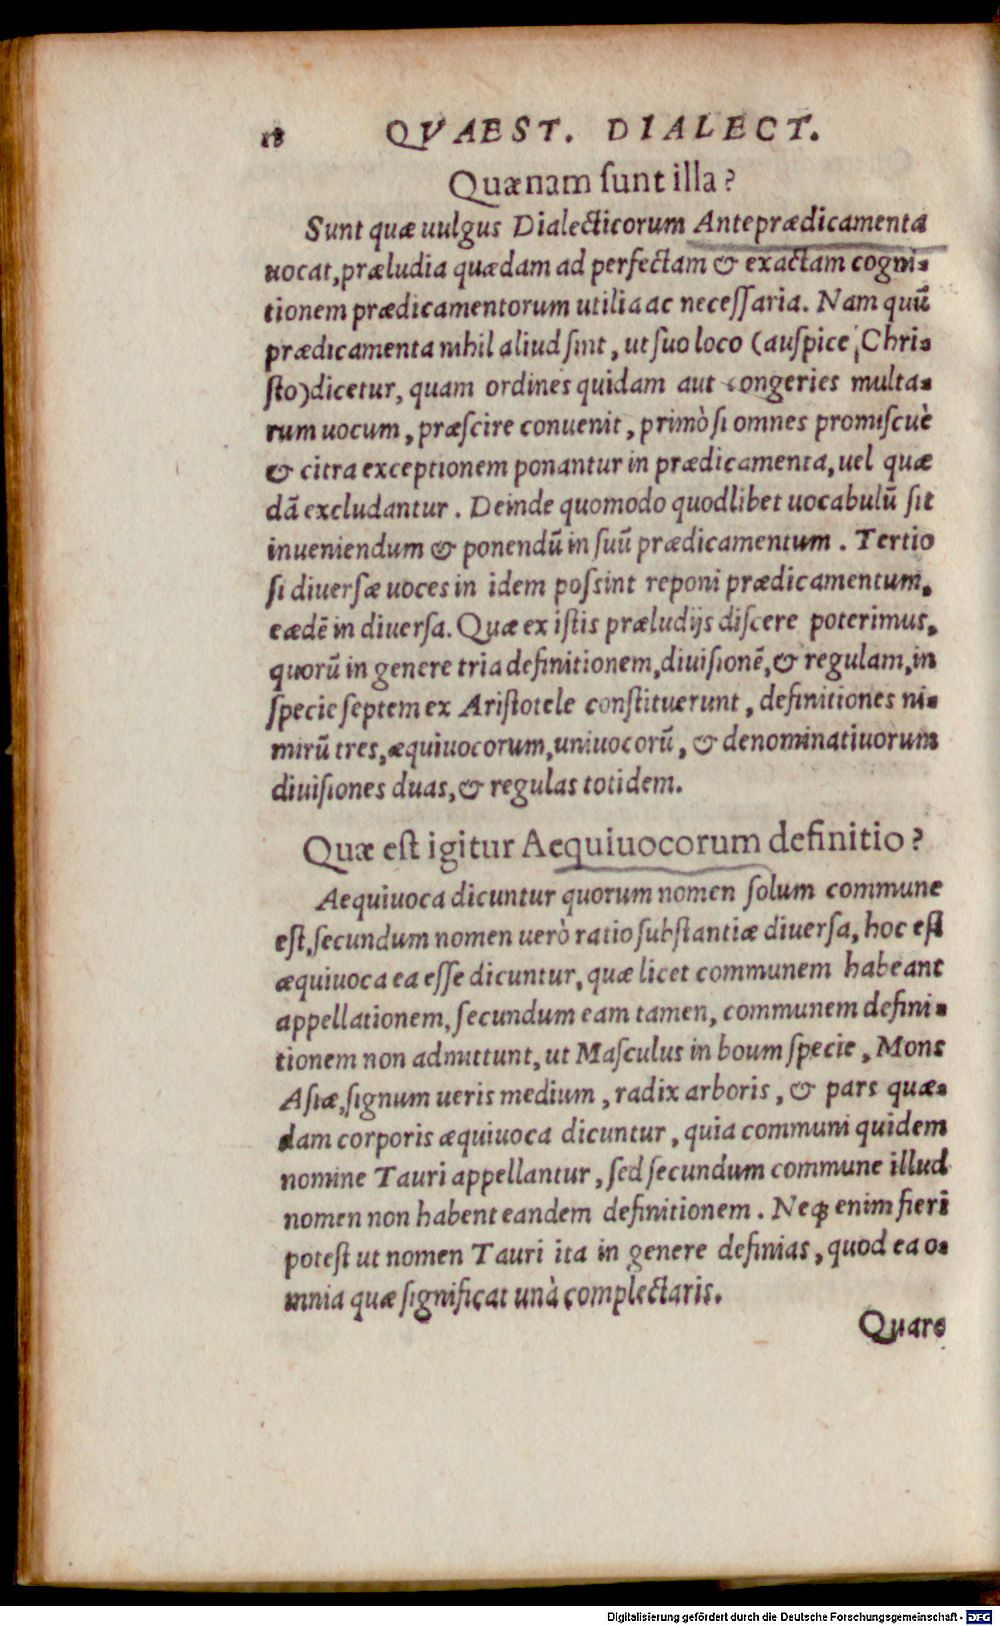 18 QVAEST. DIALECT.
Quænam sunt illa?
Sunt quæ uulgus Dialecticorum Anteprædicamenta
uocat, præludia quædam ad perfectam & exactam cogni-
tionem prædicamentorum utilia ac necessaria. Nam quū
prædicamenta nihil aliud sint, ut suo loco (auspice Chri-
sto) dicetur, quam ordines quidam aut congeries multa-
rum uocum, præscire conuenit, primò si omnes promiscuè
& citra exceptionem ponantur in prædicamenta, uel quæ
dā excludantur. Deinde quomodo quodlibet uocabulū sit
inueniendum & ponendū in suū prædicamentum. Tertio
si diuersæ uoces in idem possint reponi prædicamentum,
eædē in diuersa. Quæ ex istis præludijs discere poterimus,
quorū in genere tria definitionem, diuisionē, & regulam, in
specie septem ex Aristotele constituerunt, definitiones ni-
mirū tres, æquiuocorum, uniuocorū, & denominatiuorum
diuisiones duas, & regulas totidem.
Quæ est igitur Aequiuocorum definitio?
Aequiuoca dicuntur quorum nomen solum commune
est, secundum nomen uerò ratio substantiæ diuersa, hoc est
æquiuoca ea esse dicuntur, quæ licet communem habeant
appellationem, secundum eam tamen, communem defini-
tionem non admittunt, ut Masculus in boum specie, Mons
Asiæ, signum ueris medium, radix arboris, & pars quæ-
dam corporis æquiuoca dicuntur, quia communi quidem
nomine Tauri appellantur, sed secundum commune illud
nomen non habent eandem definitionem. Neqꝫ enim fieri
potest ut nomen Tauri ita in genere definias, quod ea o-
mnia quæ significat unà complectaris.
Quare
Digitalisierung gefördert durch die Deutsche Forschungsgemeinschaft - DFG